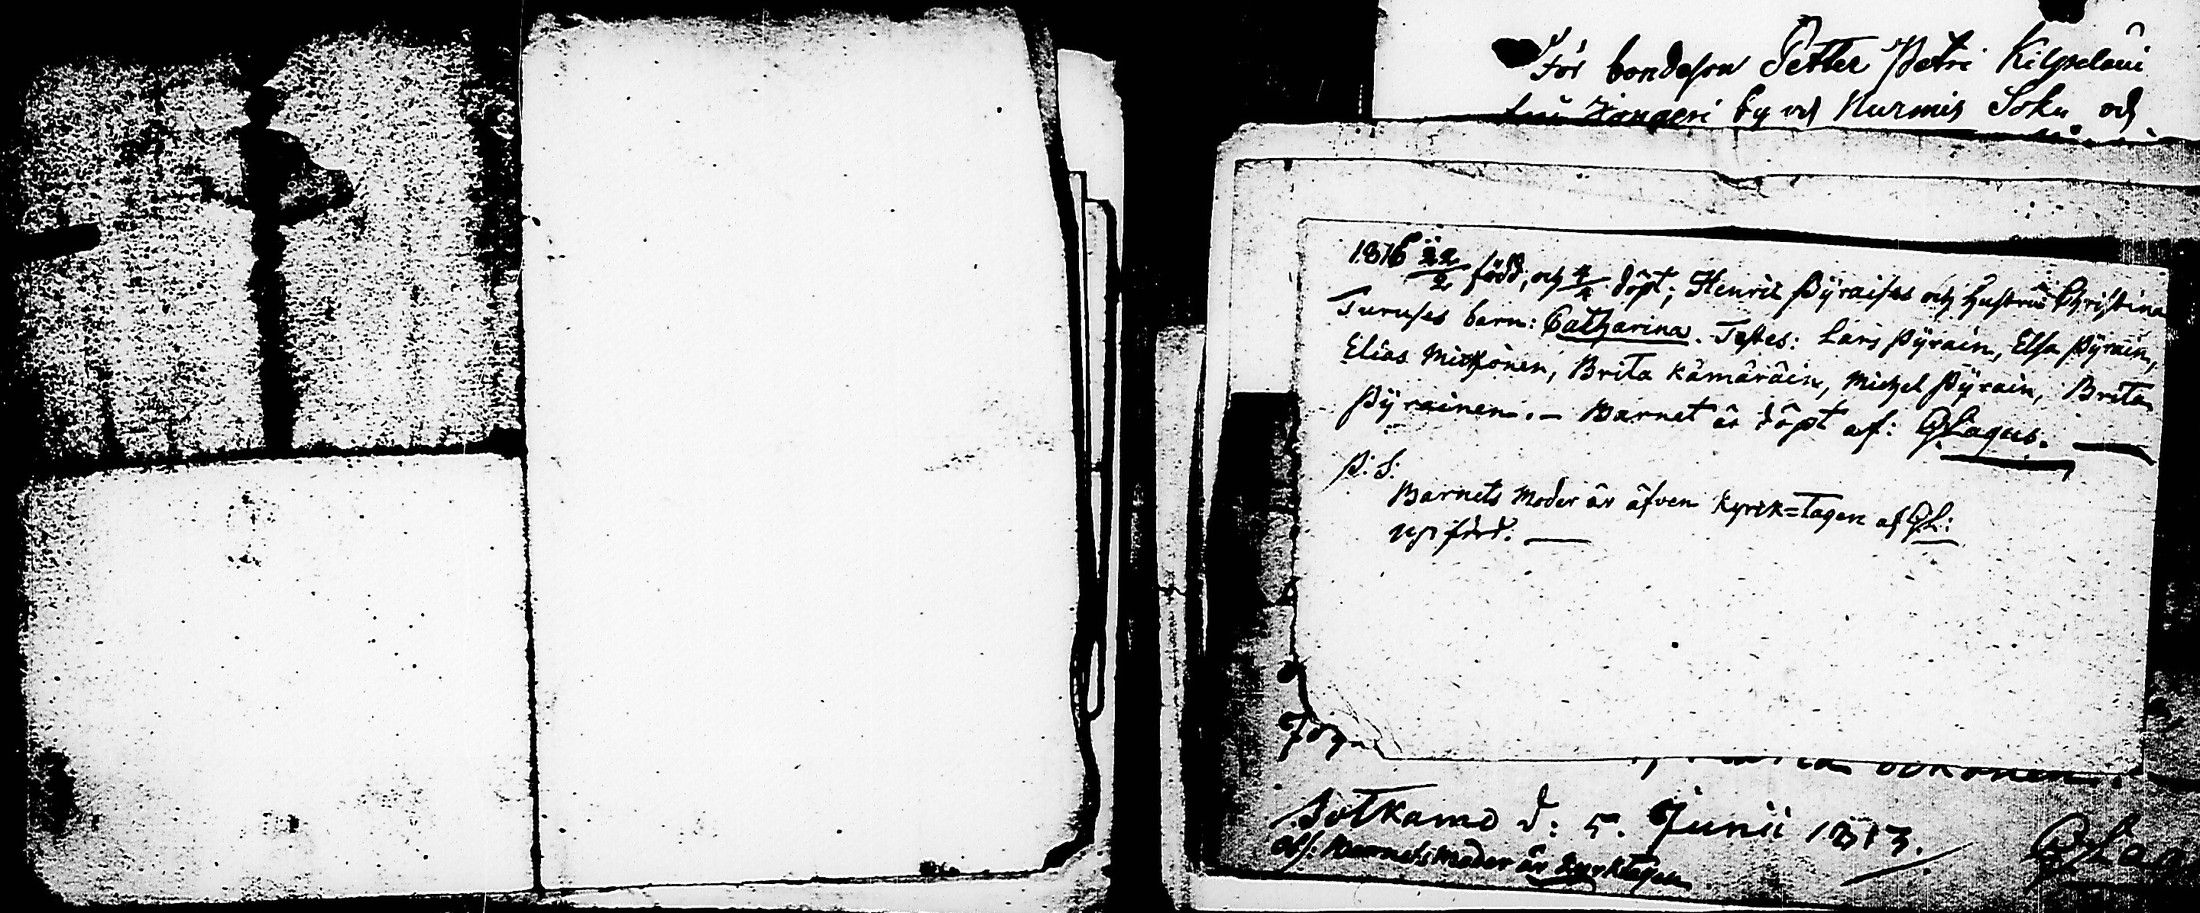 För bondeson Petter Petri Kilpeläin
by och Nurmis Sokn och
1816 22/2 född, och 4/4 döpt; Henric Pyraises och hustrus Christina
Turuses barn: Catharina. Testes: Lars Pÿrain, Elsa Pÿrain,
Elias Mitkönen, Brita Kämäräin, Michel Pÿrain, Brita
Pÿrainen. — Barnet är döpt af: G. Lagus. —
P. S.
Barnets Moder är äfven Kyrk=tagen af GL:
upförd. —
Sotkamo d: 5. Junii 1813.
Barnets Moder är Kyrktagen